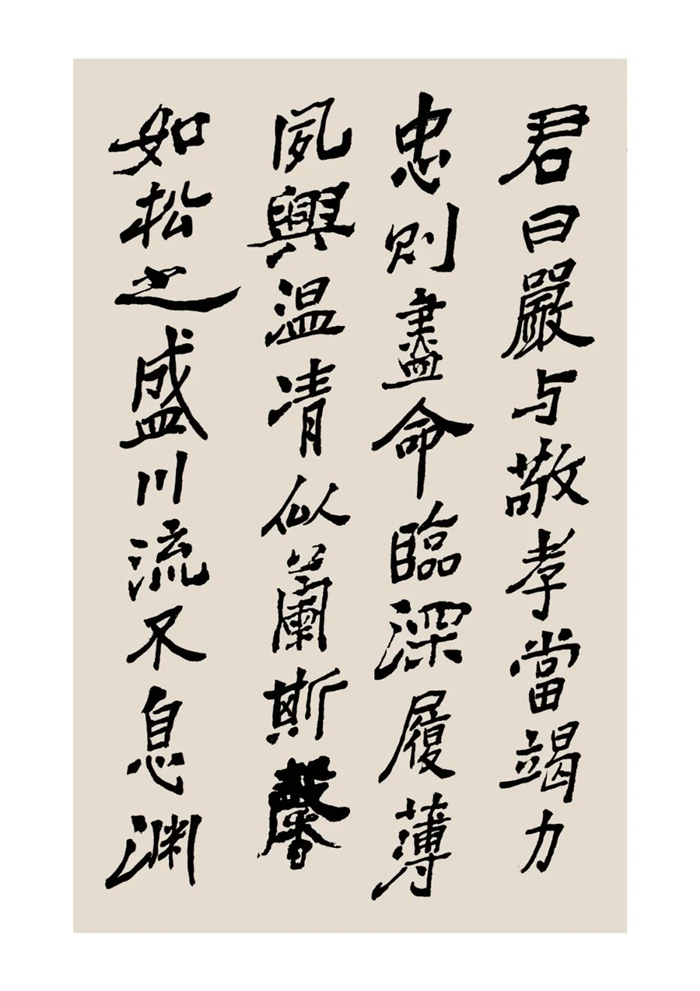 君曰嚴与敬孝當竭力
忠則盡命臨深履薄
夙興温凊似蘭斯馨
如松之盛川流不息渊